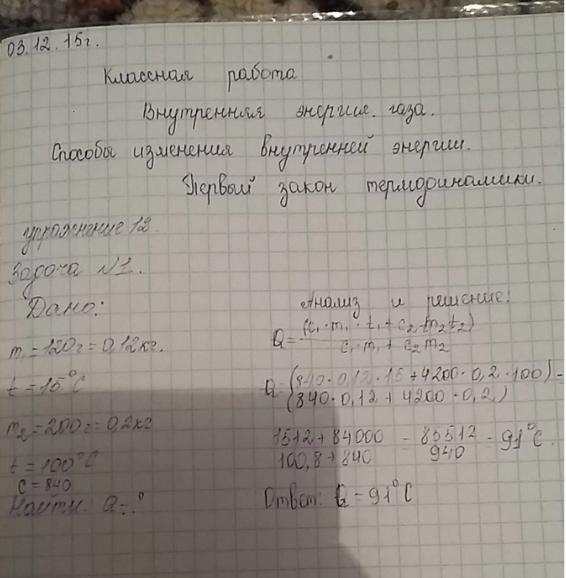 03.12.15г.
Классная работа
Внутренняя энергия газа.
Способы изменения внутренней энергии.
Первый закон термодинамики.
упражнение 12
Задача №1.
Дано:
m = 120г = 0,12кг.
t = 15°C
m2 = 200г = 0,2кг
t = 100°C
c = 840
Найти: Q = ?
Анализ и решение:
Q = (c1 · m1 · t1 + c2 · m2 t2)
c1 · m1 + c2 m2
Q = (840 · 0,12 · 15 + 4200 · 0,2 · 100) =
(840 · 0,12 + 4200 · 0,2)
1512 + 84000 = 85512 = 91°C.
100,8 + 840 940
Ответ: Q = 91°C